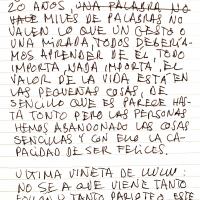 20 AÑOS, UNA PALABRA NO
VALE MILES DE PALABRAS NO
VALEN LO QUE UN GESTO O
UNA MIRADA, TODOS DEBERÍA-
MOS APRENDER DE EL. TODO
IMPORTA, NADA IMPORTA, EL
VALOR DE LA VIDA ESTÁ EN
LAS PEQUEÑAS COSAS, DE
SENCILLO QUE ES PARECE HAS-
TA TONTO PERO LAS PERSONAS
HEMOS ABANDONADO LAS COSAS
SENCILLAS Y CON ELLO LA CA-
PACIDAD DE SER FELICES.
ULTIMA VIÑETA DE LULU:
NO SE A QUE VIENE TANTO
Y TANTO PARIPOTE ESTE